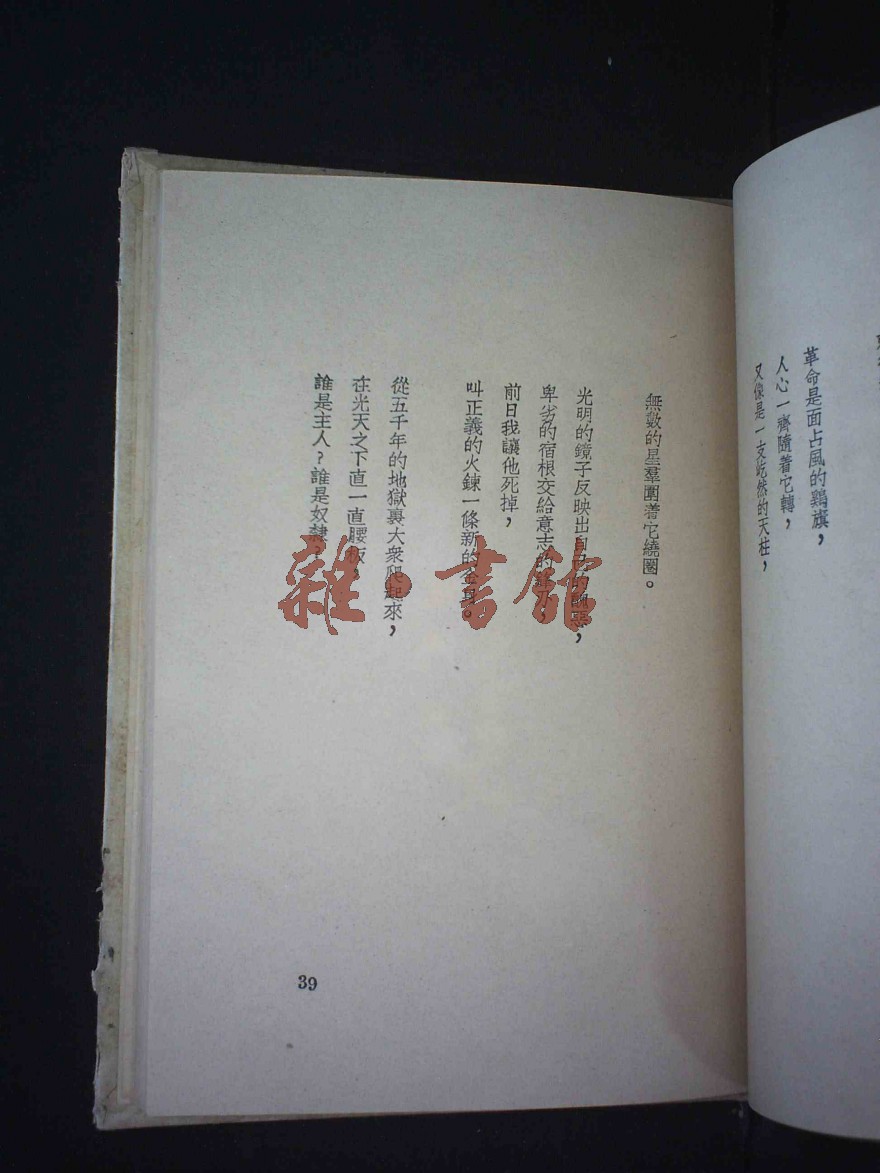 革命是面占風的鷄旗，
人心一齊隨着它轉，
又像是一支屹然的天柱，
無數的星羣圍着它繞圈。
光明的鏡子反映出自己的醜惡，
卑劣的宿根交給意志的
前日我讓他死掉，
叫正義的火鍊一條新的金身。
從五千年的地獄裏大衆爬起來，
在光天之下直一直腰板，
誰是主人？誰是奴隸？
39
雜·書館